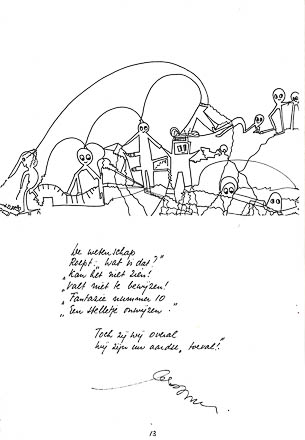 De wetenschap
Roept: "Wat is dat?"
"Kan het niet zien!
"Valt niet te bewijzen!
"Fantasie nummer 10
"Een stelletje onwijzen."
Toch zij wij overal
wij zijn uw aardse "toeval"!
13